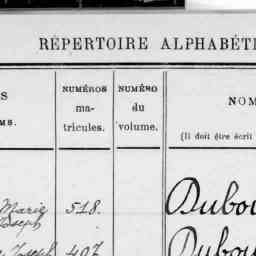 RÉPERTOIRE ALPHABÉTI
S
MS.
NUMÉROS
ma-
tricules.
NUMÉRO
du
volume.
NOM
(Il doit être écrit
Marie
Joseph
518.
Dubou
Joseph
407
Dubou